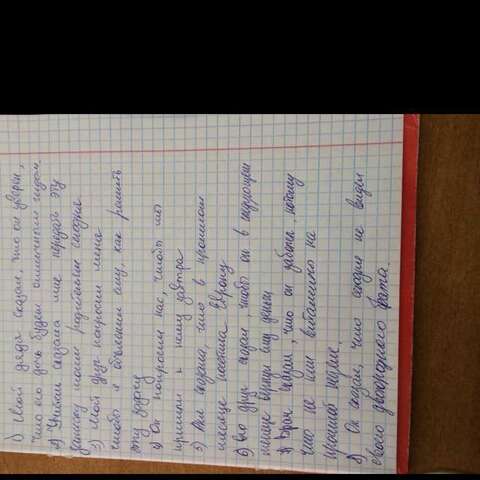 1) Мой дядя сказал, что он уверен,
что его дочь будет отличным гидом.
2) сказала мне передать эту
записку моим родителям сегодня
3) Мой друг попросил меня
чтобы я объяснил ему, как решить
эту задачу
4) Он попросил нас, чтобы мы
пришли к нему завтра
5) сказала, что в прошлом
месяце посетила Европу
6) его друг сказал, чтобы он в следующем
месяце ему деньги
7) Врач сказал, что он заболел, потому
что не пил витамины на
прошлой неделе.
8) Он сказал, что сегодня не видел
своего двоюродного брата.